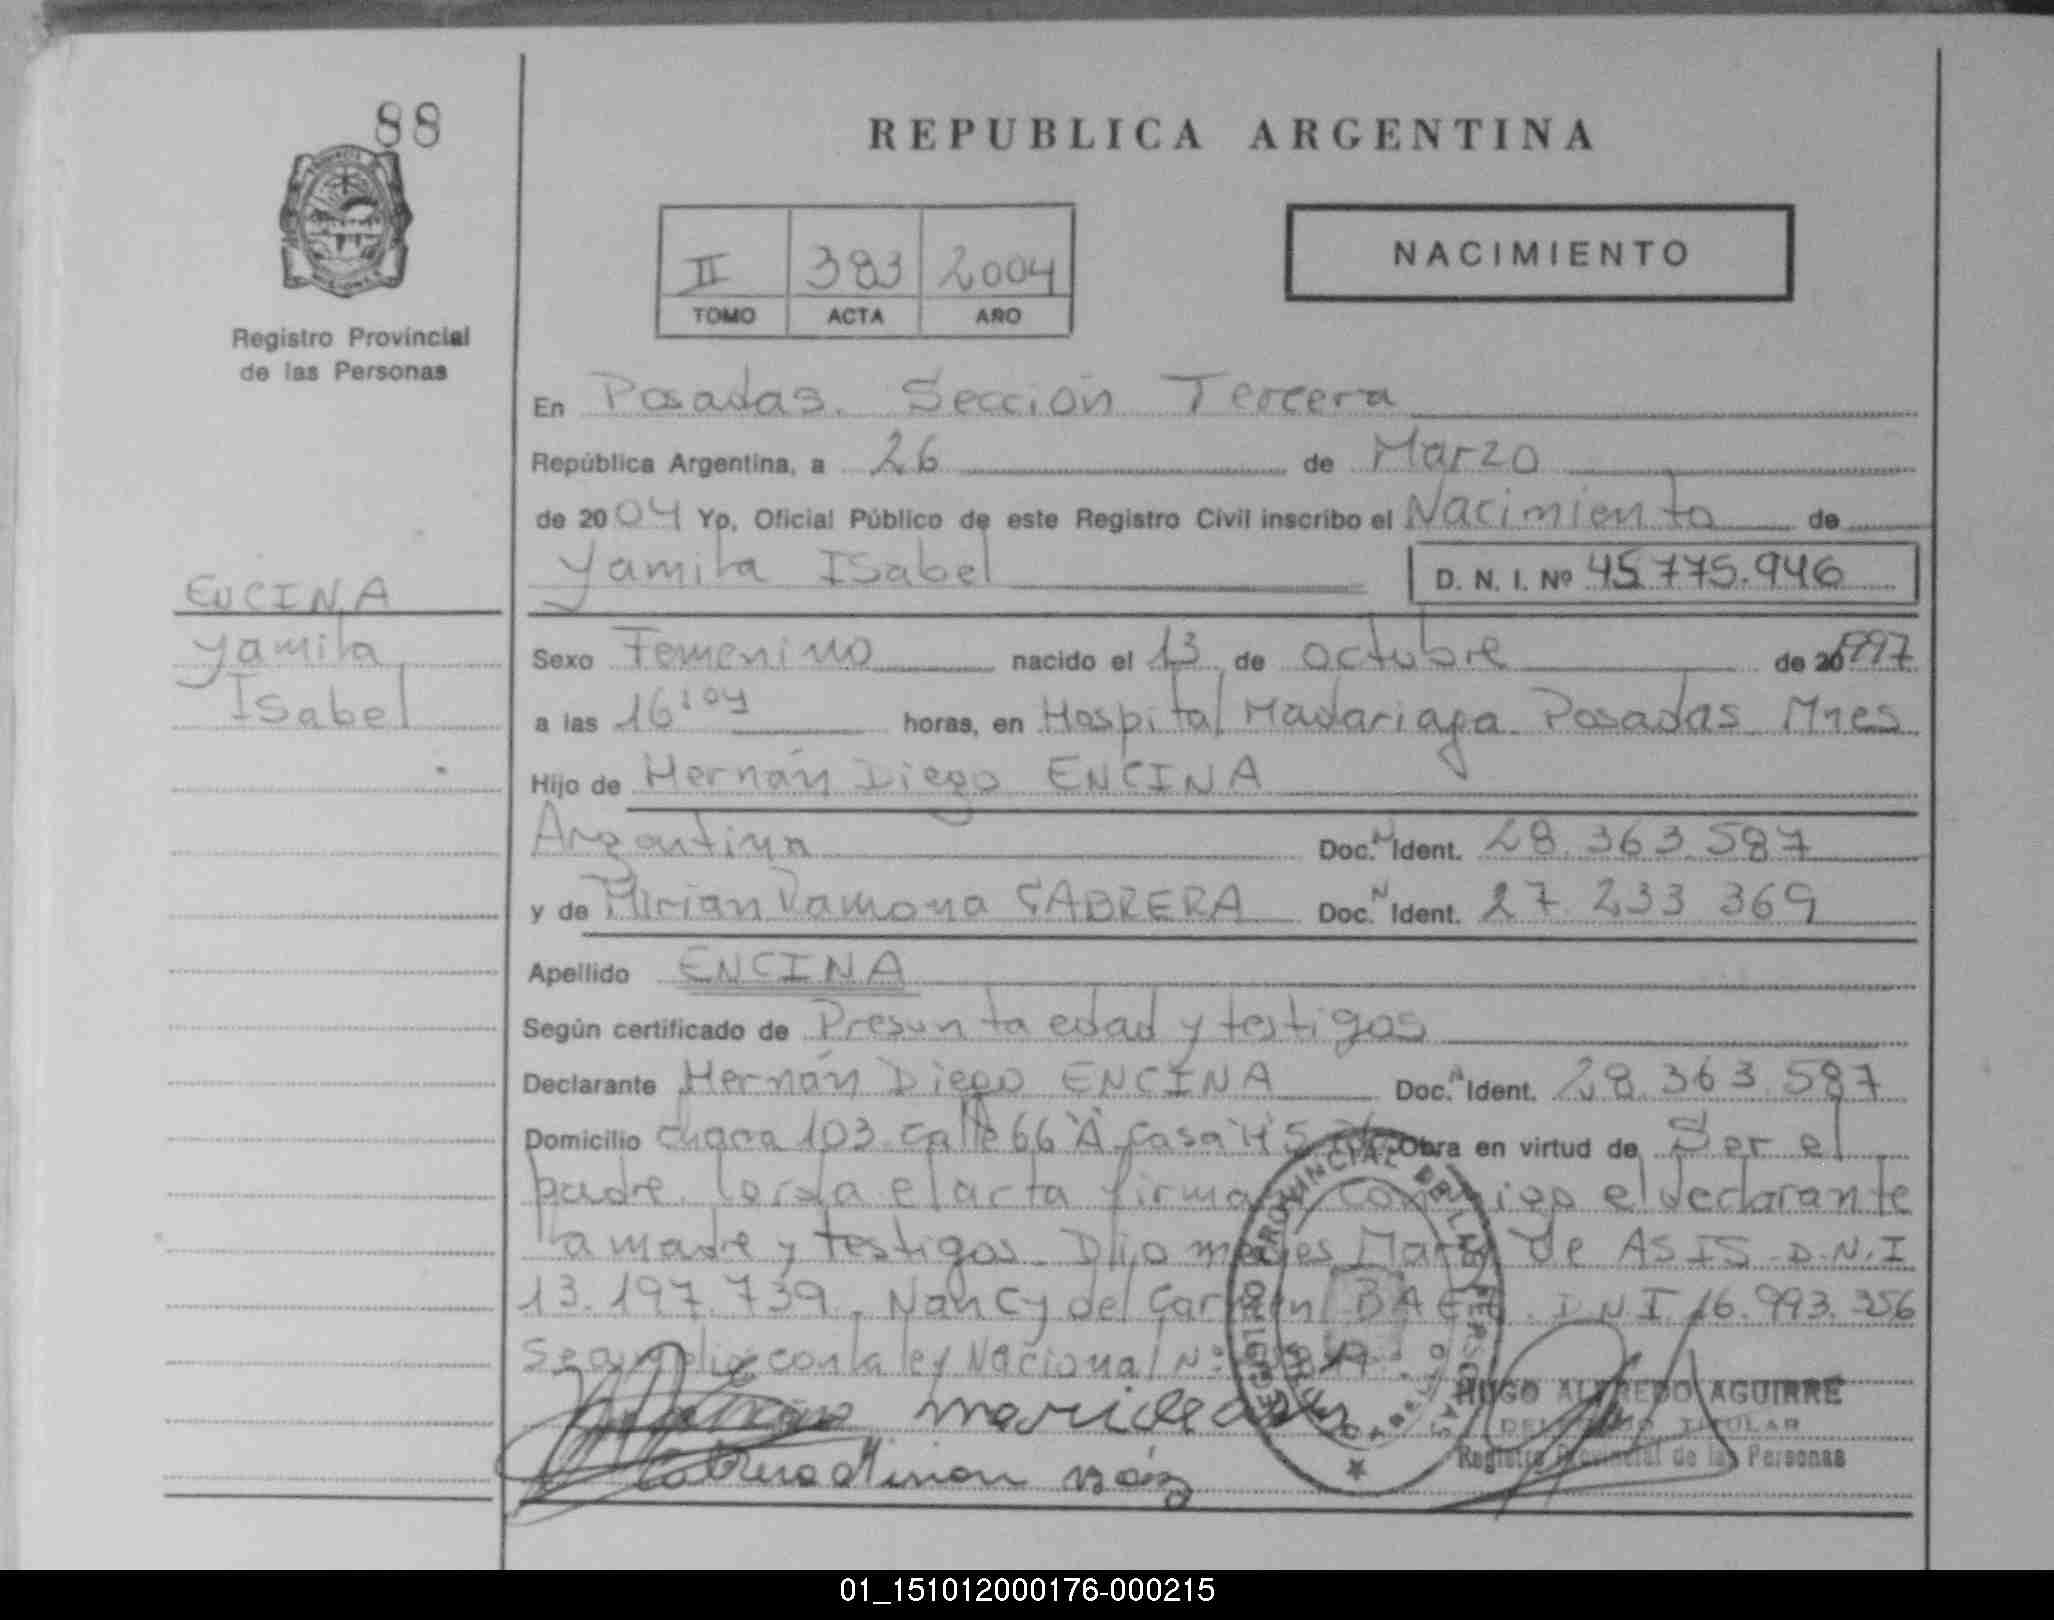 88
REPUBLICA ARGENTINA
II 383 2004
TOMO ACTA AÑO
NACIMIENTO
Registro Provincial
de las Personas
En Posadas. Sección Tercera
República Argentina, a 26 de Marzo
de 2004 Yo, Oficial Público de este Registro Civil inscribo el Nacimiento de
Yamila Isabel D. N. I. Nº 45.775.946
ENCINA
Yamila
Isabel
Sexo Femenino nacido el 13 de octubre de 1997
a las 16:04 horas, en Hospital Madariaga Posadas Mnes
Hijo de Hernán Diego ENCINA
Argentina Doc. N Ident. 28.363.587
y de Mirian Ramona CABRERA Doc. N Ident. 27.233.369
Apellido ENCINA
Según certificado de Presunta edad y testigos
Declarante Hernán Diego ENCINA Doc. N Ident. 28.363.587
Domicilio chacra 103 calle 66 "A" casa Obra en virtud de Ser el
padre leida el acta firman conmigo el declarante
la madre y testigos. de ASIS D.N.I
13.197.739. Nancy del Carmen BAEZ. D.N.I. 16.993.356
con la ley Nacional Nº
Cabrera Mirian Báez
HUGO ALFREDO AGUIRRE
DELEGADO TITULAR
Registro Provincial de las Personas
REGISTRO PROVINCIAL DE LAS PERSONAS
01_151012000176-000215